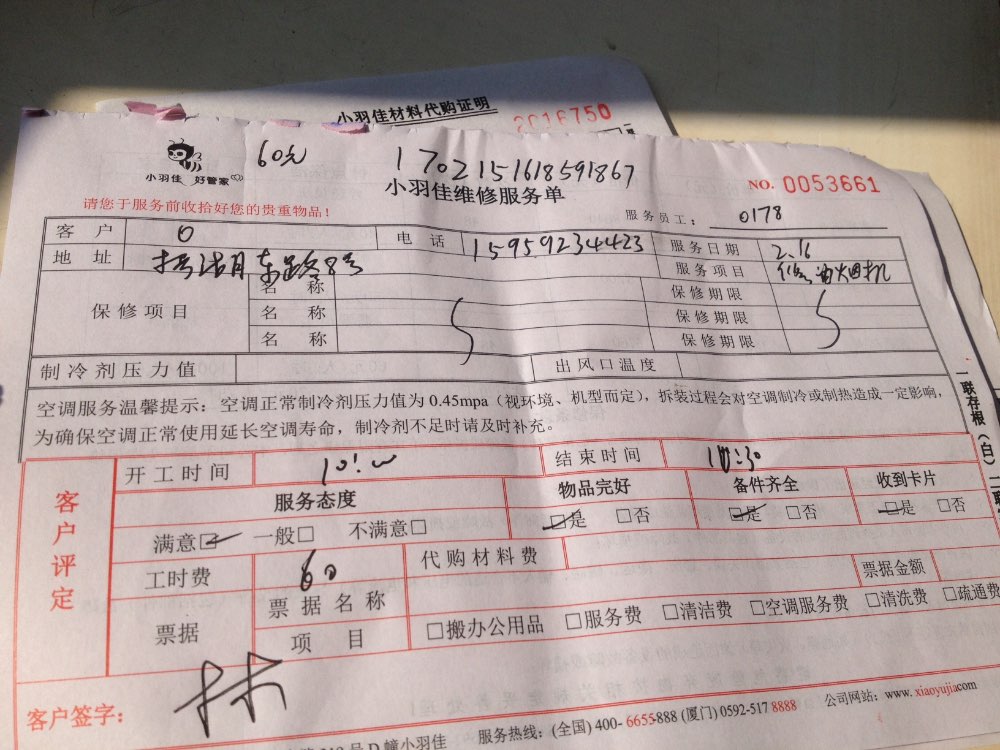 小羽佳材料代购证明
2016750
小羽佳 好管家
60元
1702151618591867
小羽佳维修服务单
NO. 0053661
请您于服务前收拾好您的贵重物品！
服务员工： 0178
客户 0 电话 15959234423 服务日期 2.16
地址 东路8号 服务项目 修油烟机
保修项目
名称 保修期限
名称 保修期限
名称 保修期限
制冷剂压力值 出风口温度
空调服务温馨提示：空调正常制冷剂压力值为 0.45mpa（视环境、机型而定），拆装过程会对空调制冷或制热造成一定影响，
为确保空调正常使用延长空调寿命，制冷剂不足时请及时补充。
一联存根（白）
客户评定
开工时间 结束时间
服务态度 物品完好 备件齐全 收到卡片
满意□ 一般□ 不满意□ □是 □否 □是 □否 □是 □否
工时费 60 代购材料费 票据金额
票据 票据名称
项目 □搬办公用品 □服务费 □清洁费 □空调服务费 □清洗费 □疏通费
客户签字： 林
号 D 幢小羽佳 服务热线：(全国) 400- 6655-888 (厦门) 0592-517 8888 公司网站：www. xiaoyujia.com